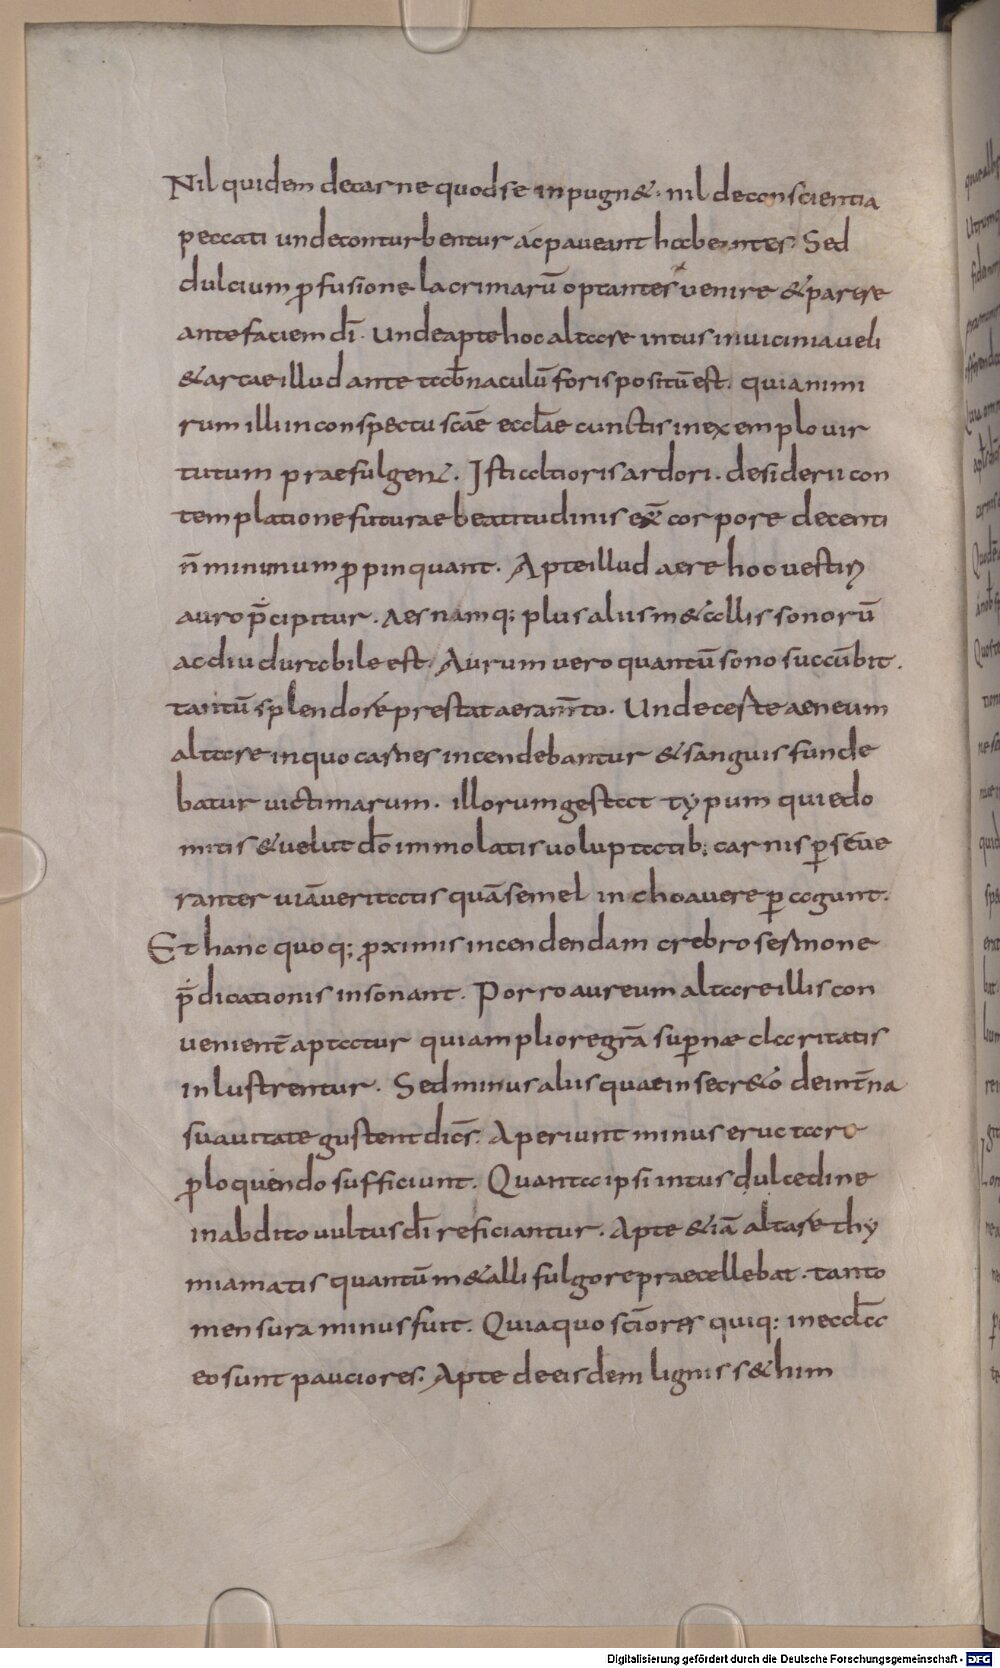 Nil quidem decarne quodse inpugn&. nil deconscientia
peccati undeconturbentur acpaueant habentes. Sed
dulcium ꝓfusione lacrimarū optantes uenire &parere
antefaciem dī. Undeapte hoc altare intus inuicinia ueli
&arcae illud ante tab̄naculū foris positū est. quia nimi
rum illi inconspectu scāe eccłae cunctis inexemplo uir
tutum praefulgenꞇ. Isti altioris ardori. desiderii con
templatione futurae beatitudinis ex̄ corpore decenti
n̄ minimum ꝓpinquant. Apte illud aere hoc uestiꞇ
auro p̄cipitur. Aes namq; plus aliis m&allis sonorū
ac diu durabile est. Aurum uero quantū sono succūbit.
tantū splendore prestat aeram̄to. Unde ceste aeneum
altare inquo carnes incendebantur &sanguis funde
batur uictimarum. illorum gestat typum qui edo
mitis &uelut dō immolatis uoluptatib; carnis ꝑseue
ranter uiā ueritatis quā semel inchoauere ꝑagunt.
Et hanc quoq; ꝓximis incendendam crebro sermone
p̄dicationis insonant. Porro aureum altare illis con
uenient̄ aptatur quiampliore grā suꝑnæ claritatis
inlustrentur. Sed minus aliis quae insecr&o deint̄na
suauitate gustent dicr̄. Aperiunt minus eructare
ꝓloquendo sufficiunt. Quanta ipsi intus dulcedine
inabdito uultus dī reficiantur. Apte &iā altare thy
miamatis quantū m&alli fulgore praecellebat. tanto
mensura minus fuit. Quia quo sc̄iores quiq: in eccła
eo sunt pauciores. Apte de eisdem lignis s&him
Digitalisierung gefördert durch die Deutsche Forschungsgemeinschaft - DFG